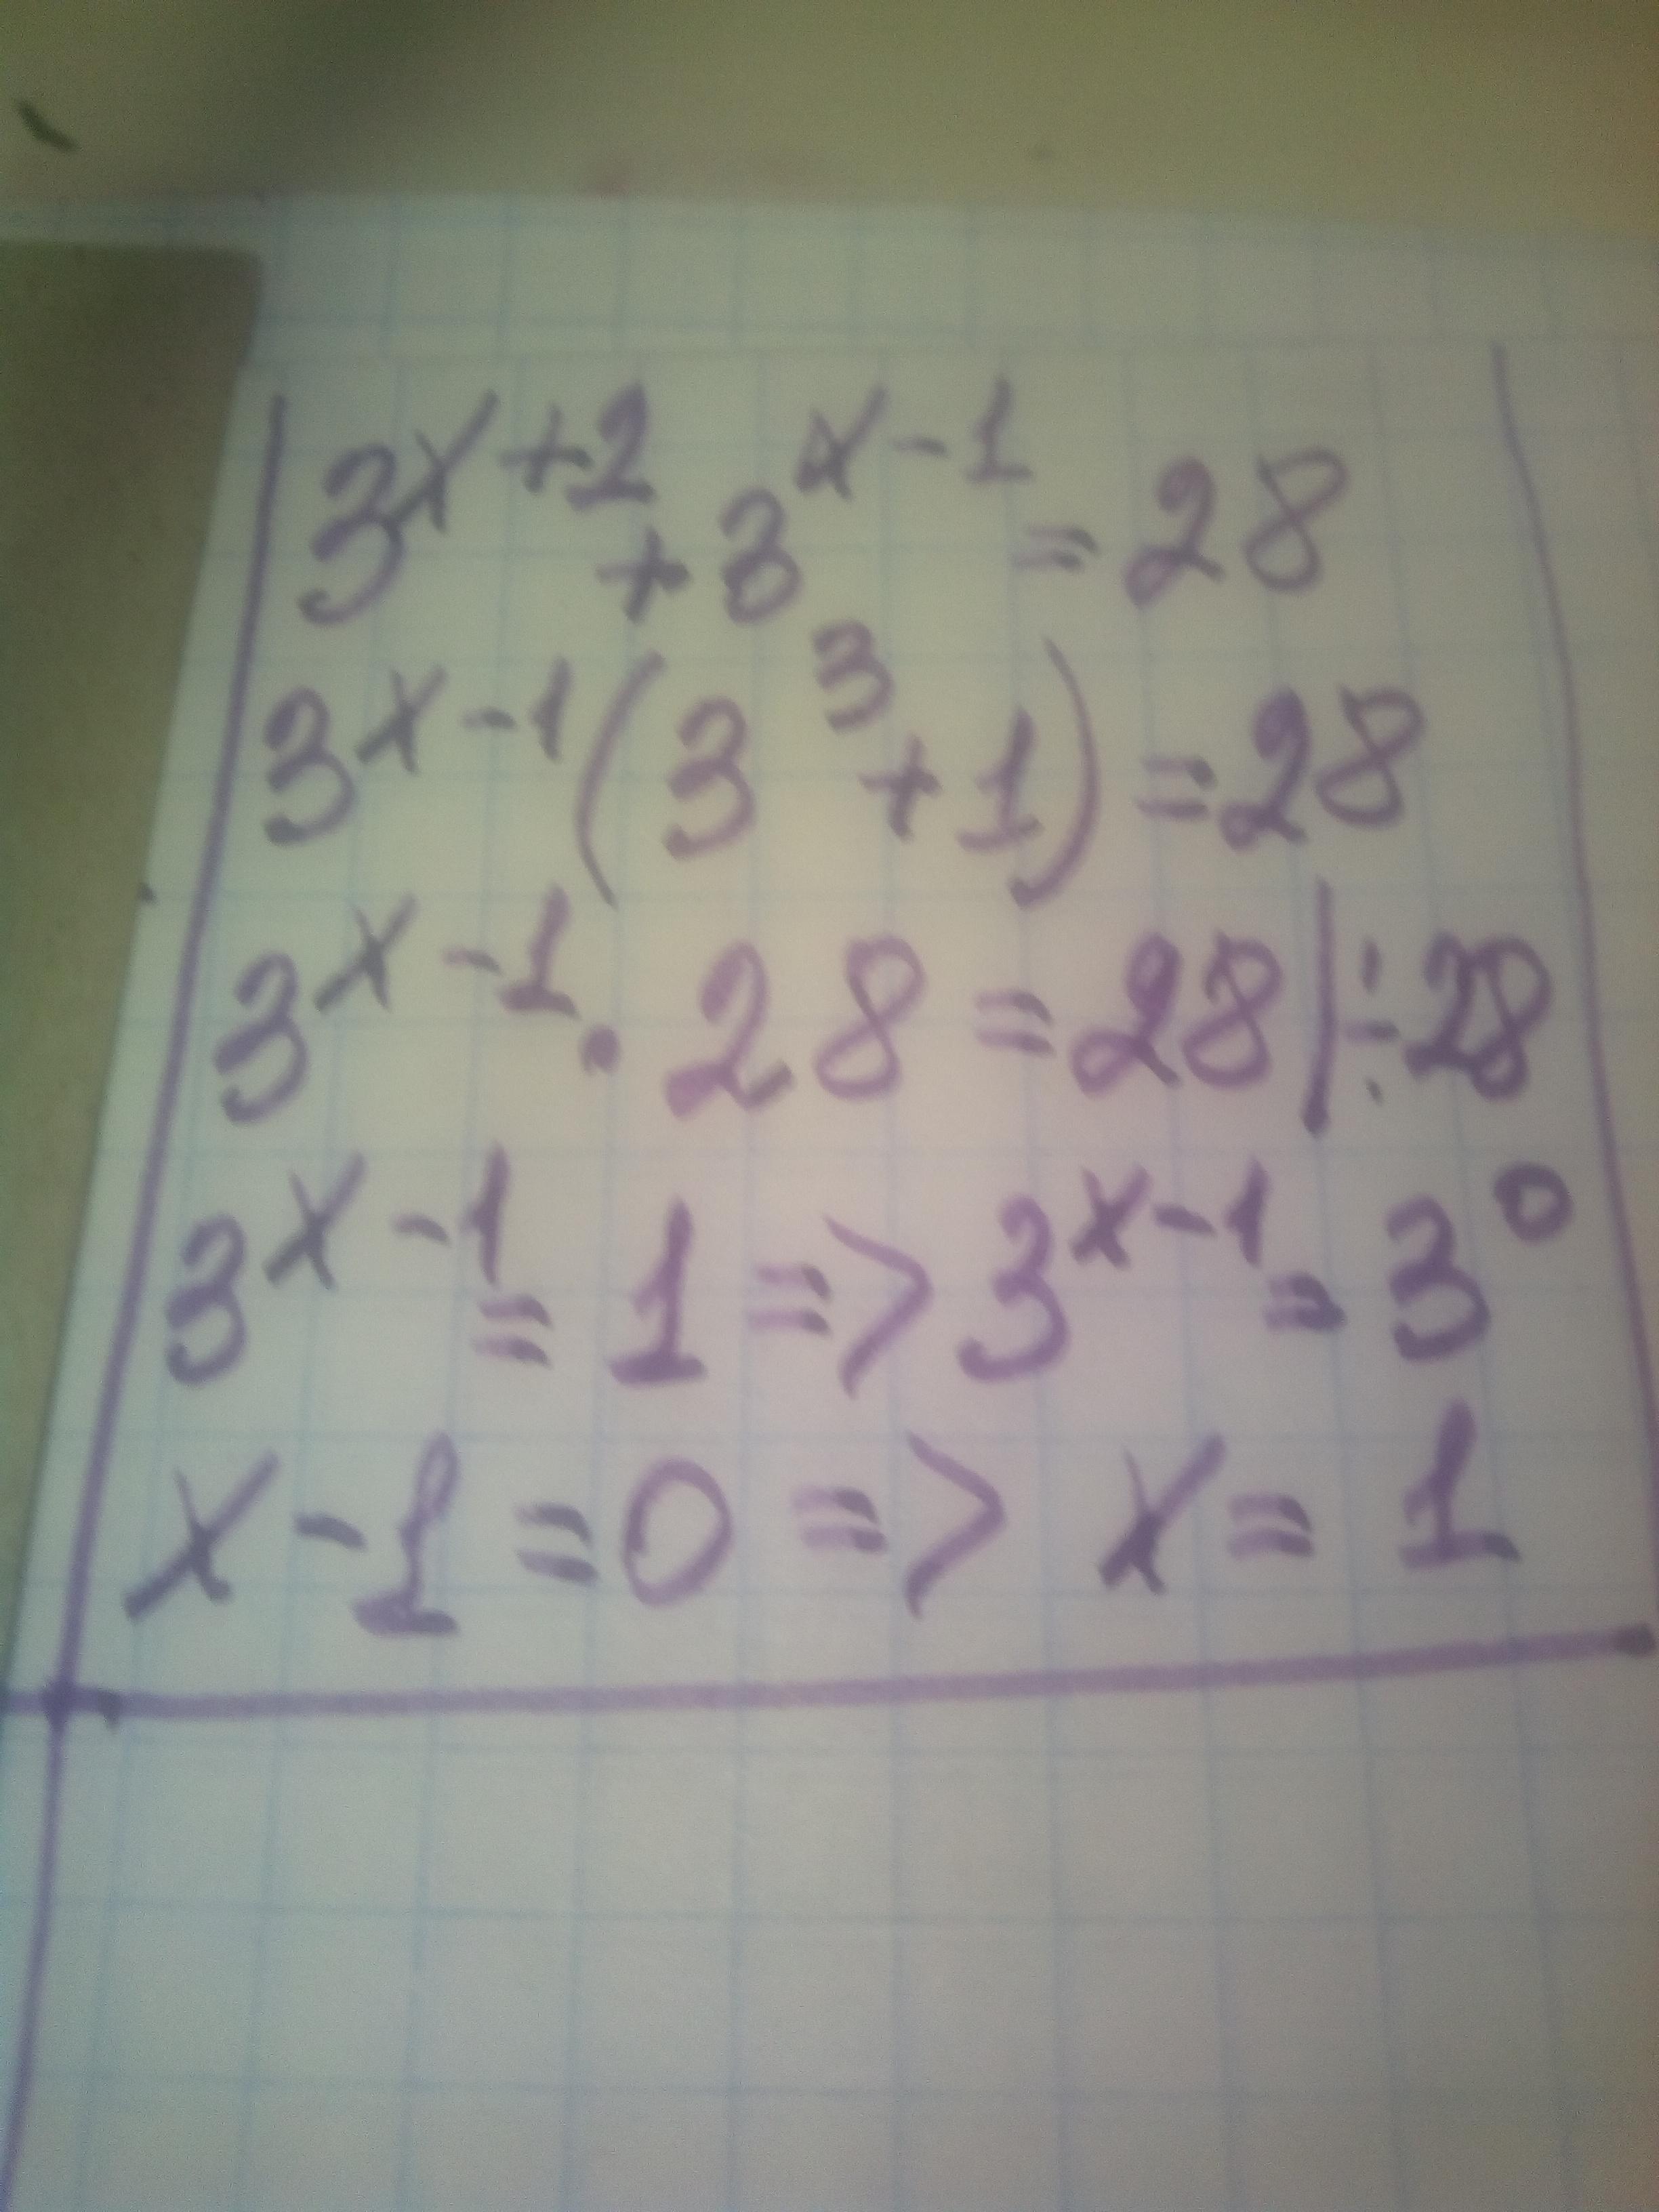 3^{x+2} + 3^{x-1} = 28
3^{x-1}(3^3 + 1) = 28
3^{x-1} · 28 = 28 | ÷ 28
3^{x-1} = 1 => 3^{x-1} = 3^0
x - 1 = 0 => x = 1